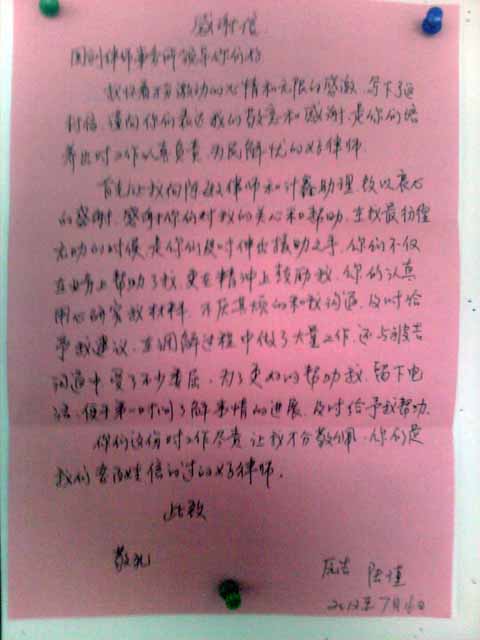 感谢信
国创律师事务所领导你们好
我怀着万分激动的心情和无限的感激，写下了这
封信，谨向你们表达我的敬意和感谢，是你们培
养出对工作认真负责，为民解忧的好律师。
首先让我向陈敏律师和计鑫助理，致以衷心
的感谢，感谢你们对我的关心和帮助，在我最彷徨
无助的时候，是你们及时伸出援助之手，你们不仅
在业务上帮助了我，更在精神上鼓励我，你们认真
用心研究我材料，不厌其烦的和我沟通，及时给
予我建议，在调解过程中做了大量工作，还与被告
沟通中受了不少委屈，为了更好的帮助我，留下电
话，便于第一时间了解事情的进展，及时给予我帮助。
你们这份对工作尽责，让我十分敬佩，你们是
我们老百姓信的过的好律师。
此致
敬礼
原告 陆
2012年7月